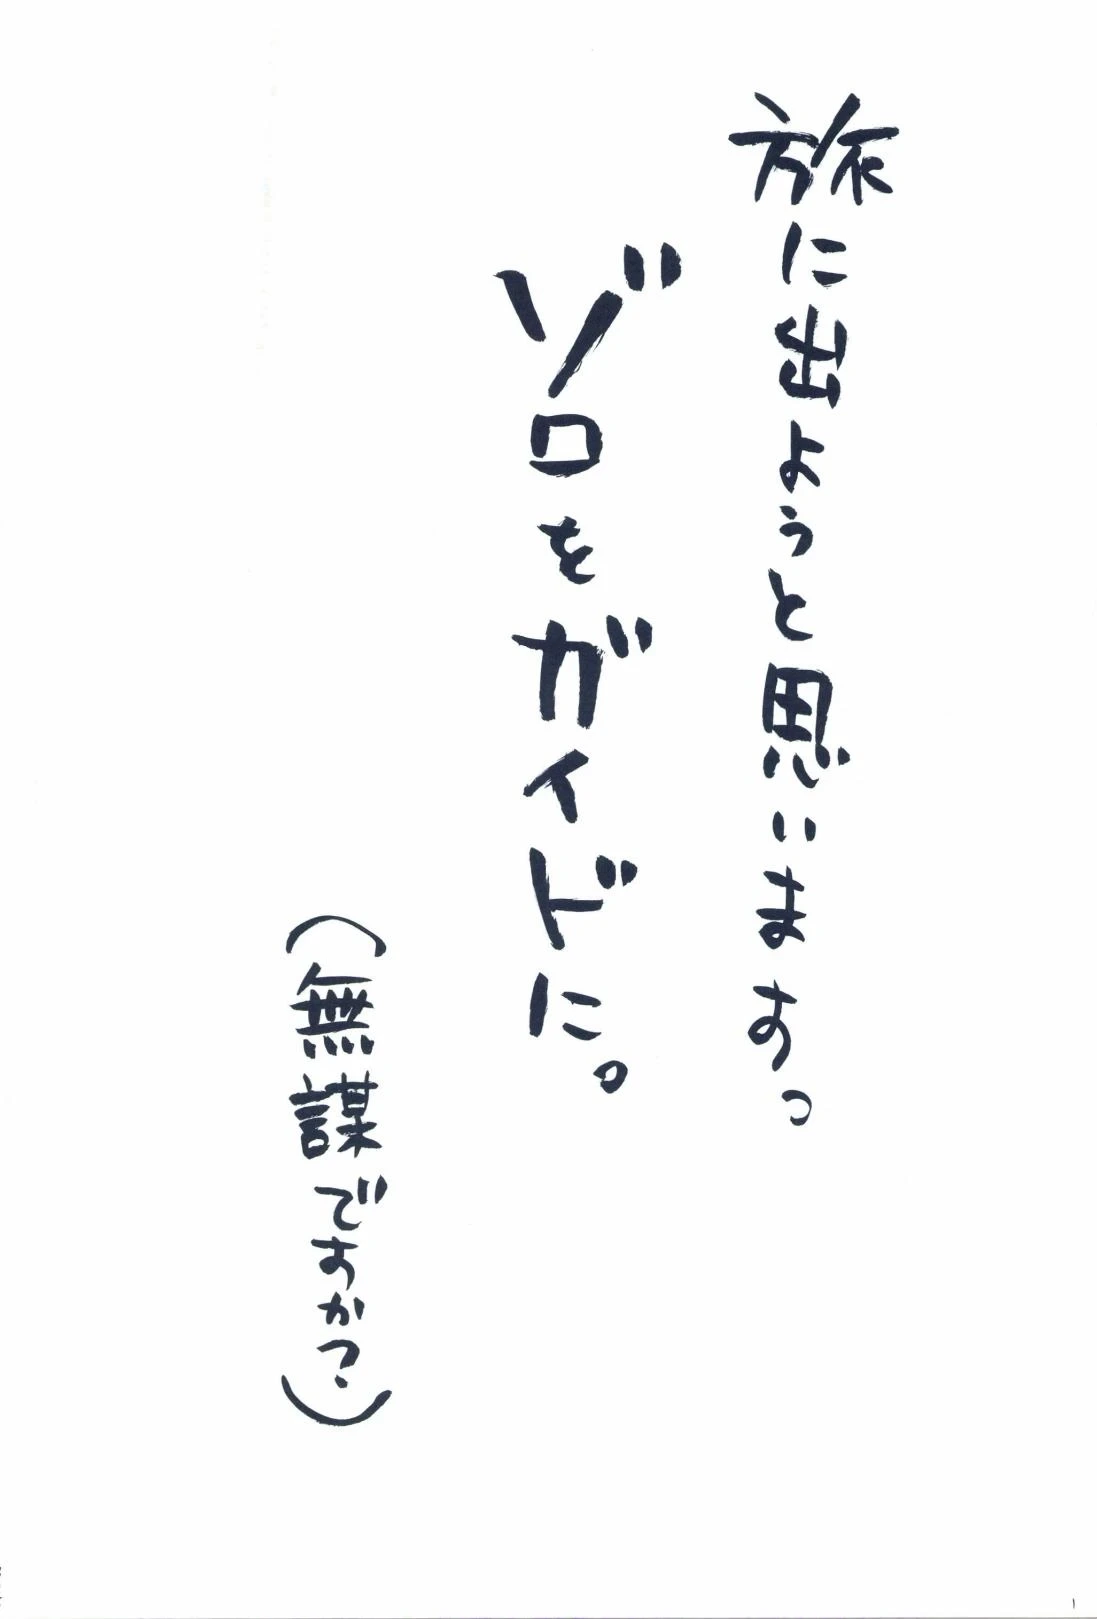 旅に出ようと思います。
ゾロをガイドに。
（無謀ですか？）
1